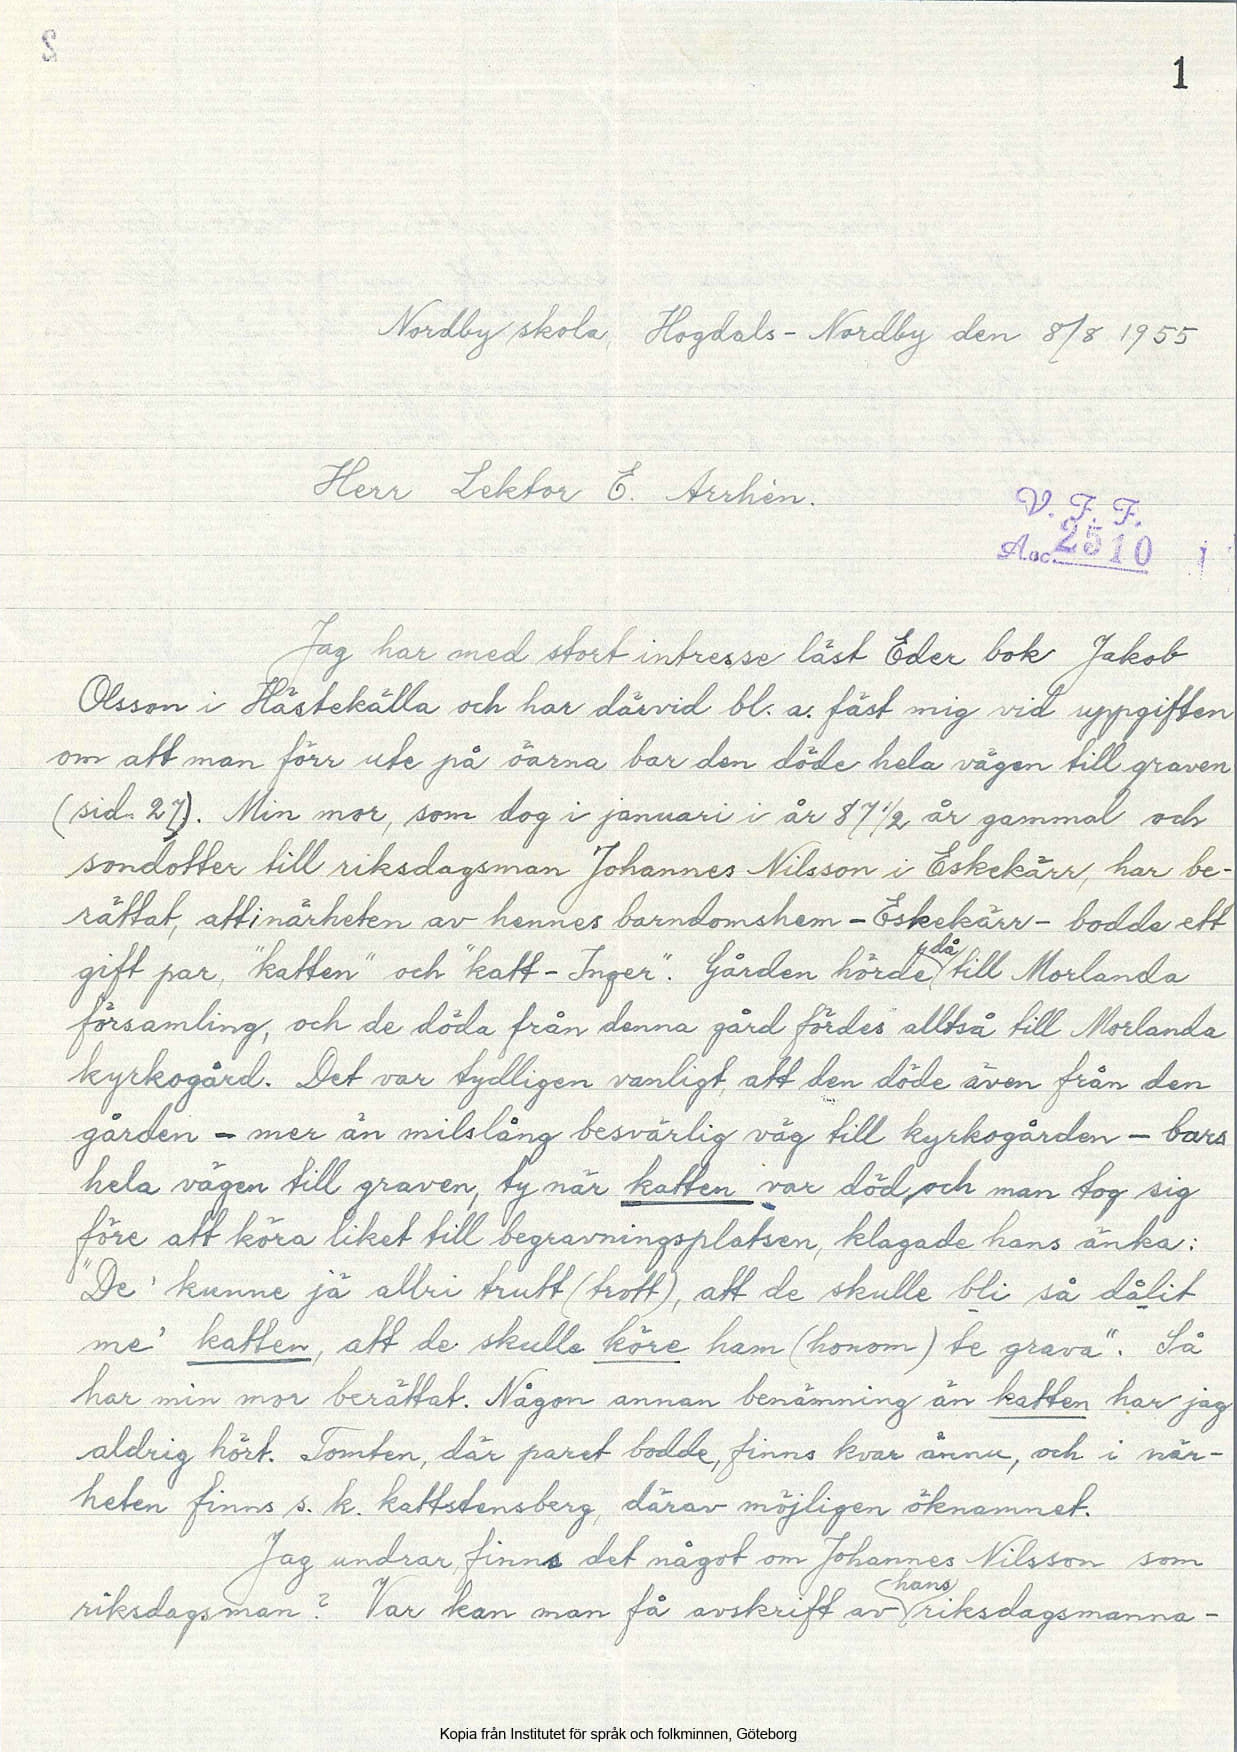 1
Nordby skola, Hogdals-Nordby den 8/8 1955
Herr Lektor E. Arrhén.
V. F. F.
Acc. 2510
Jag har med stort intresse läst Eder bok Jakob
Olsson i Hästekälla och har därvid bl. a. fäst mig vid uppgiften
om att man förr ute på öarna bar den döde hela vägen till graven
(sid. 27). Min mor, som dog i januari i år 87 1/2 år gammal och
sondotter till riksdagsman Johannes Nilsson i Eskekärr, har be-
rättat, att i närheten av hennes barndomshem - Eskekärr - bodde ett
gift par, "katten" och "katt-Inger". Gården hörde då till Morlanda
församling, och de döda från denna gård fördes alltså till Morlanda
kyrkogård. Det var tydligen vanligt, att den döde även från den
gården - mer än milslång besvärlig väg till kyrkogården - bars
hela vägen till graven, ty när katten var död, och man tog sig
före att köra liket till begravningsplatsen, klagade hans änka:
"De' kunne jä allri trutt (trott), att de skulle bli så dålit
me' katten, att de skulle köre ham (honom) te grava". Så
har min mor berättat. Någon annan benämning än katten har jag
aldrig hört. Tomten, där paret bodde, finns kvar ännu, och i när-
heten finns s. k. kattstensberg, därav möjligen öknamnet.
Jag undrar, finns det något om Johannes Nilsson som
riksdagsman? Var kan man få avskrift av hans riksdagsmanna-
Kopia från Institutet för språk och folkminnen, Göteborg